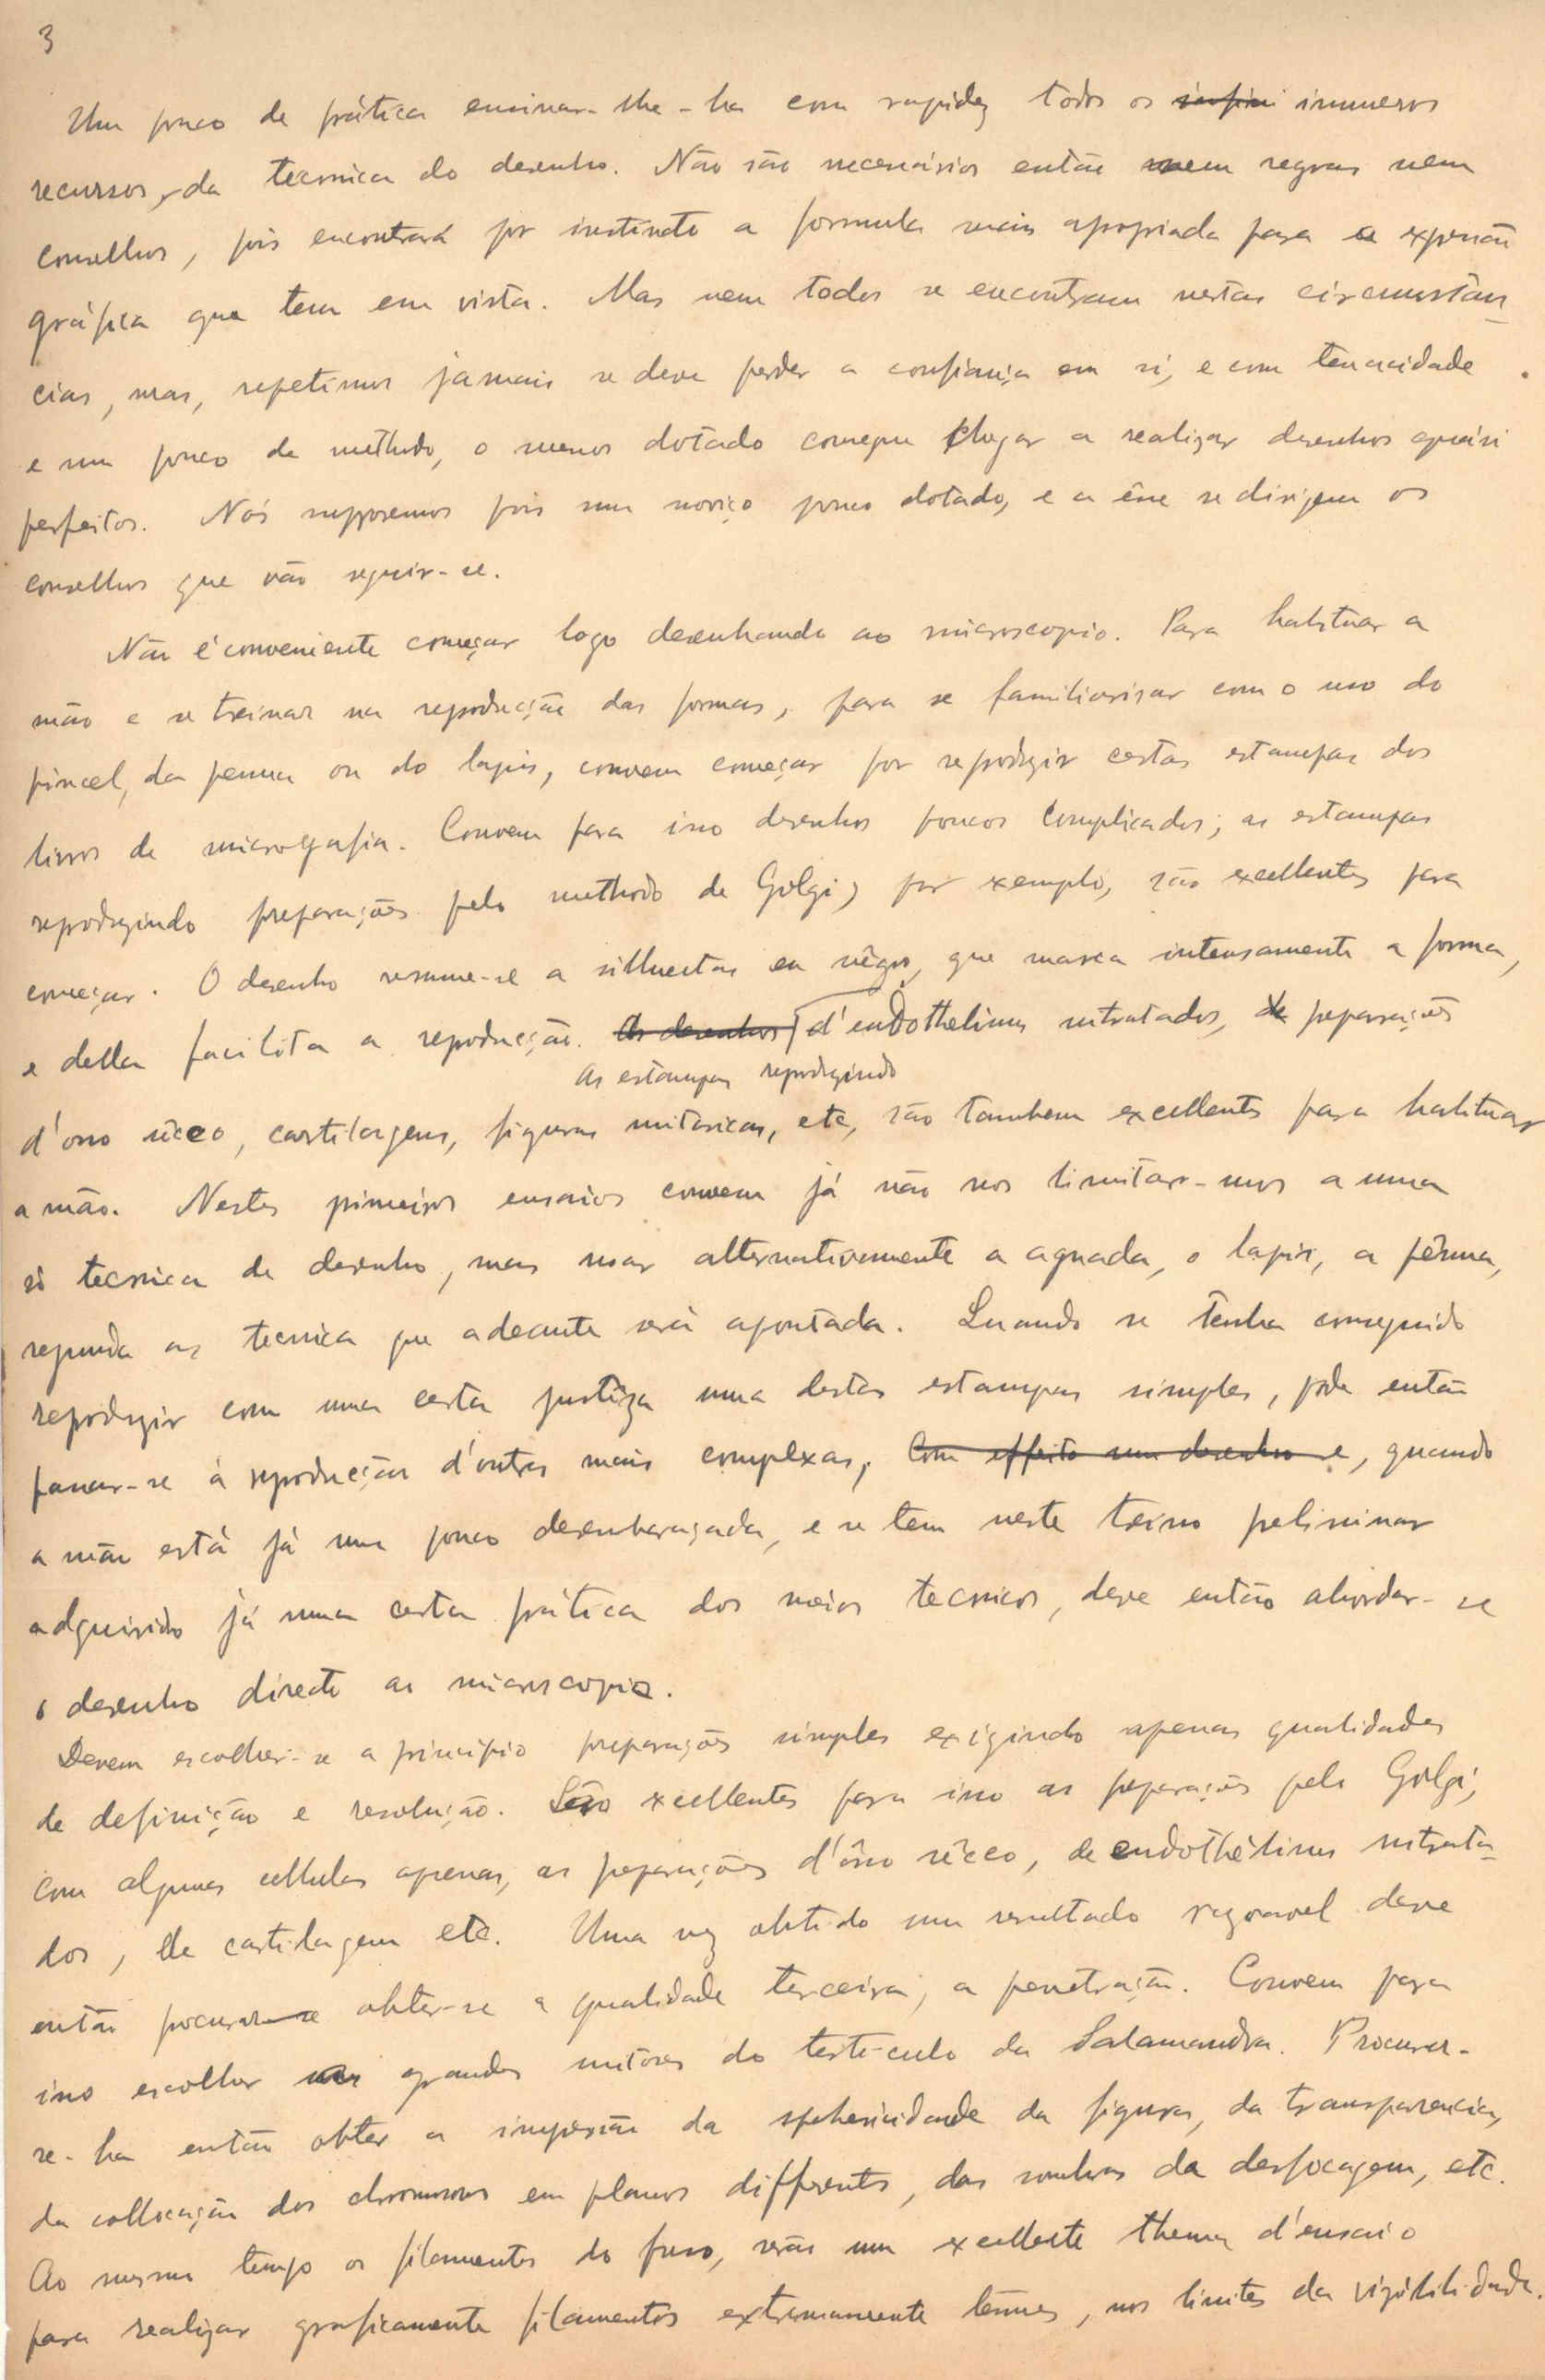 3
Um pouco de prática ensinar-lhe-ha com rapidez todos os infini inumeros
recursos, da tecnica do desenho. Não são necessários então nem regras nem
conselhos, pois encontrará por instincto a formula mais apropriada para a expressão
gráfica que tem em vista. Mas nem todos se encontram nestas circumstan-
cias, mas, repetimos jamais se deve perder a confiança em si, e com tenacidade
e um pouco de methodo, o menos dotado consegue chegar a realizar desenhos quási
perfeitos. Nós supporemos pois um noviço pouco dotado, e a êsse se dirigem os
conselhos que vão seguir-se.
Não é conveniente começar logo desenhando ao microscopio. Para habituar a
mão e se treinar na reprodução das formas, para se familiarisar com o uso do
pincel, da penna ou do lapis, convem começar por reproduzir certas estampas dos
livros de micrografia. Convem para isso desenhos poucos complicados; as estampas
reproduzindo preparações pelo methodo de Golgi, por exemplo, são excellentes para
começar. O desenho resume-se a silhuetas em nêgro, que marca intensamente a forma,
e della facilita a reprodução. Os desenhos d'endothelium nitratados, de preparações
As estampas reproduzindo
d'osso sêcco, cartilagens, figuras mitosicas, etc, são tambem excellentes para habituar
a mão. Nestes primeiros ensaios convem já não nos limitar-mos a uma
só tecnica de desenho, mas usar alternativamente a aguada, o lapis, a pênna,
segundo as tecnica que adeante será apontada. Quando se tenha conseguido
reproduzir com uma certa justeza uma destas estampas simples, pode então
passar-se á reprodução d'outras mais complexas, Com effeito um desenho e, quando
a mão está já um pouco desembaraçada, e se tem neste treino preliminar
adquirido já uma certa prática dos meios tecnicos, deve então abordar-se
o desenho directo ao microscopio.
Devem escolher-se a principio preparações simples exigindo apenas qualidades
de definição e resolução. São excellentes para isso as preparações pelo Golgi,
com algumas cellulas apenas, as preparações d'ôsso sêcco, de endothélium nitrata-
dos, de cartilagem etc. Uma vez obtido um resultado razoavel deve
então procurar-se obter-se a qualidade terceira, a penetração. Convem para
isso escolher as grandes mitoses do testiculo da Salamandra. Procurar-
se-ha então obter a impressão da sphericidade da figura, da transparencia,
da collocação dos chromosomas em planos differentes, das sombras da desfocagem, etc.
Ao mesmo tempo os filamentos do fuso, serão um excellente thema d'ensaio
para realizar graficamente filamentos extremamente tênues, nos limites da visibilidade.